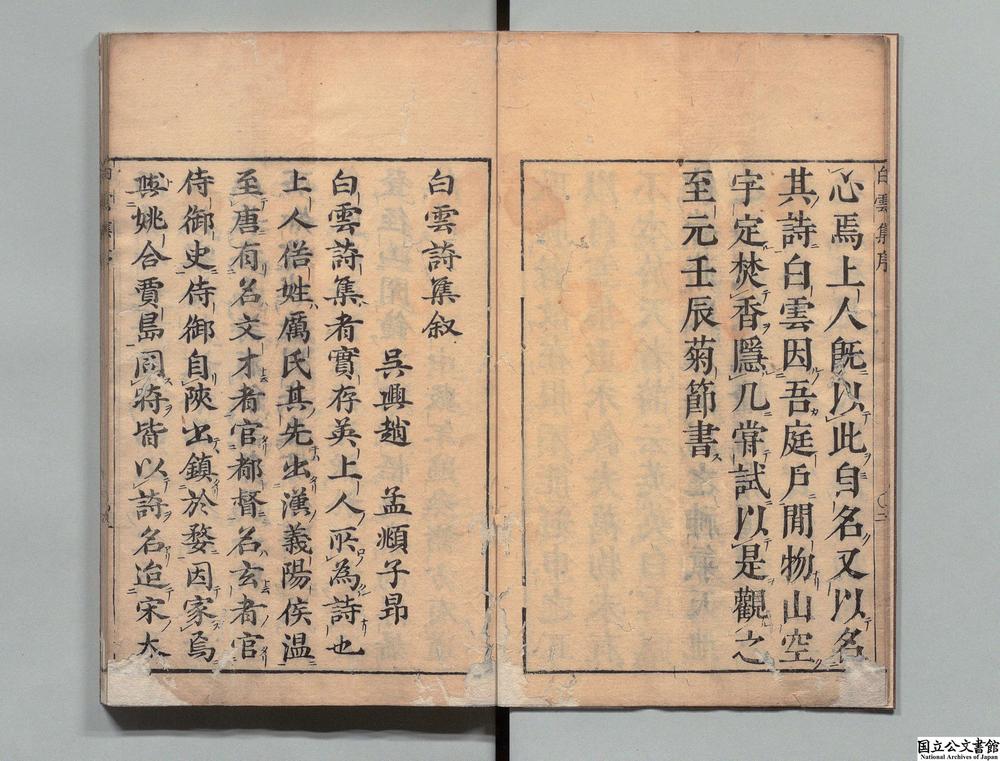 白雲集序
心焉上人旣以此自名又以名
其詩白雲因吾庭戶閒物山空
宇定焚香隱几嘗試以是觀之
至元壬辰菊節書
白雲詩集叙
吳興趙 孟順子昻
白雲詩集者實存英上人所為詩也
上人俗姓厲氏其先出漢義陽侯温
至唐有名文才者官都督名玄者官
侍御史侍御自陝出鎮於婺因家焉
與姚合賈島同時皆以詩名迨宋太
国立公文書館
National Archives of Japan